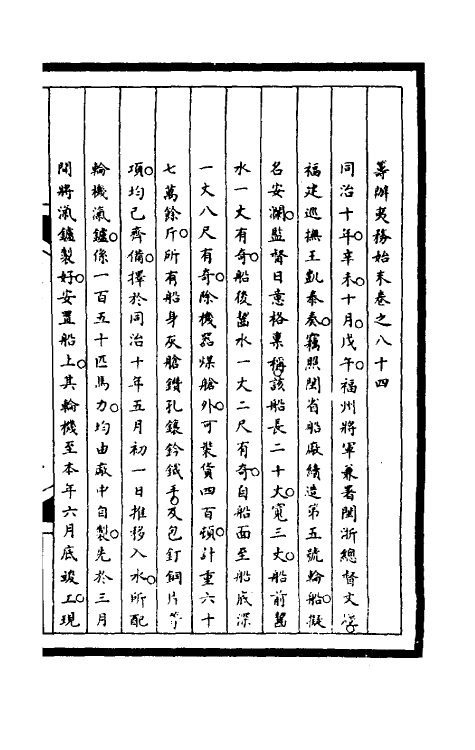 籌辦夷務始末卷之八十四
同治十年辛未十月戊午福州將軍兼署閩浙總督文煜
福建巡撫王凱泰奏竊照閩省船廠續造第五號輪船擬
名安瀾監督日意格稟稱該船長二十丈寬三丈船前醬
水一丈有奇船後醬水一丈二尺有奇自船面至船底深
一丈八尺有奇除機器煤艙外可裝貨四百頓計重六十
七萬餘斤所有船身灰艙鑽孔鑲鈐鐵手及包釘銅片等
項均已齊備擇於同治十年五月初一日推移入水所配
輪機滊鑪係一百五十匹馬力均由廠中自製先於三月
間將滊鑪製好安置船上其輪機至本年六月底竣工現